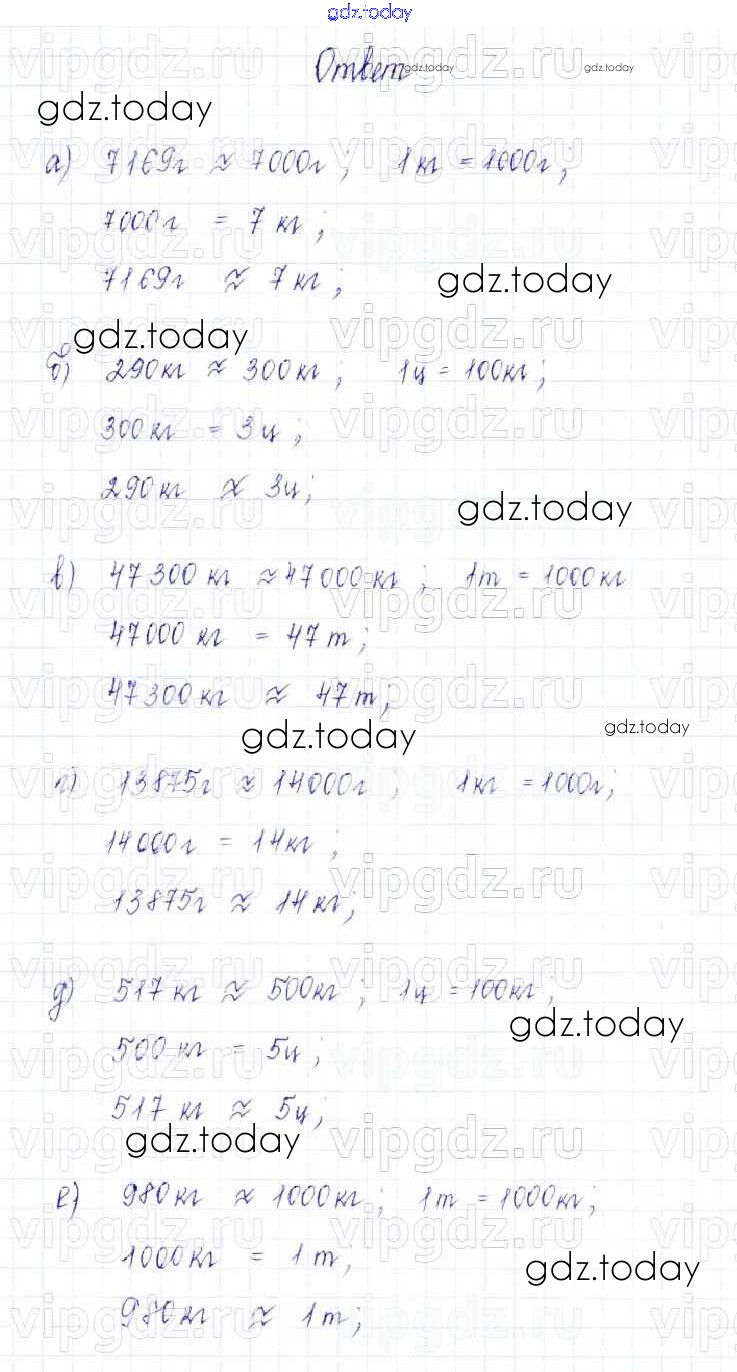 gdz.today
Ответ gdz.today gdz.today
gdz.today
а) 7169г ≈ 7000г; 1кг = 1000г;
7000г = 7 кг;
7169г ≈ 7кг; gdz.today
gdz.today
б) 290кг ≈ 300кг; 1ц = 100кг;
300кг = 3ц;
290кг ≈ 3ц;
gdz.today
в) 47300 кг ≈ 47000 кг; 1т = 1000кг
47000 кг = 47 т;
47300кг ≈ 47т;
gdz.today gdz.today
г) 13875г ≈ 14000г; 1кг = 1000г;
14000г = 14кг;
13875г ≈ 14кг;
д) 517 кг ≈ 500кг; 1ц = 100кг;
gdz.today
500кг = 5ц;
517 кг ≈ 5ц;
gdz.today
е) 980кг ≈ 1000кг; 1т = 1000кг;
1000кг = 1т;
gdz.today
980кг ≈ 1т;
vipgdz.ru